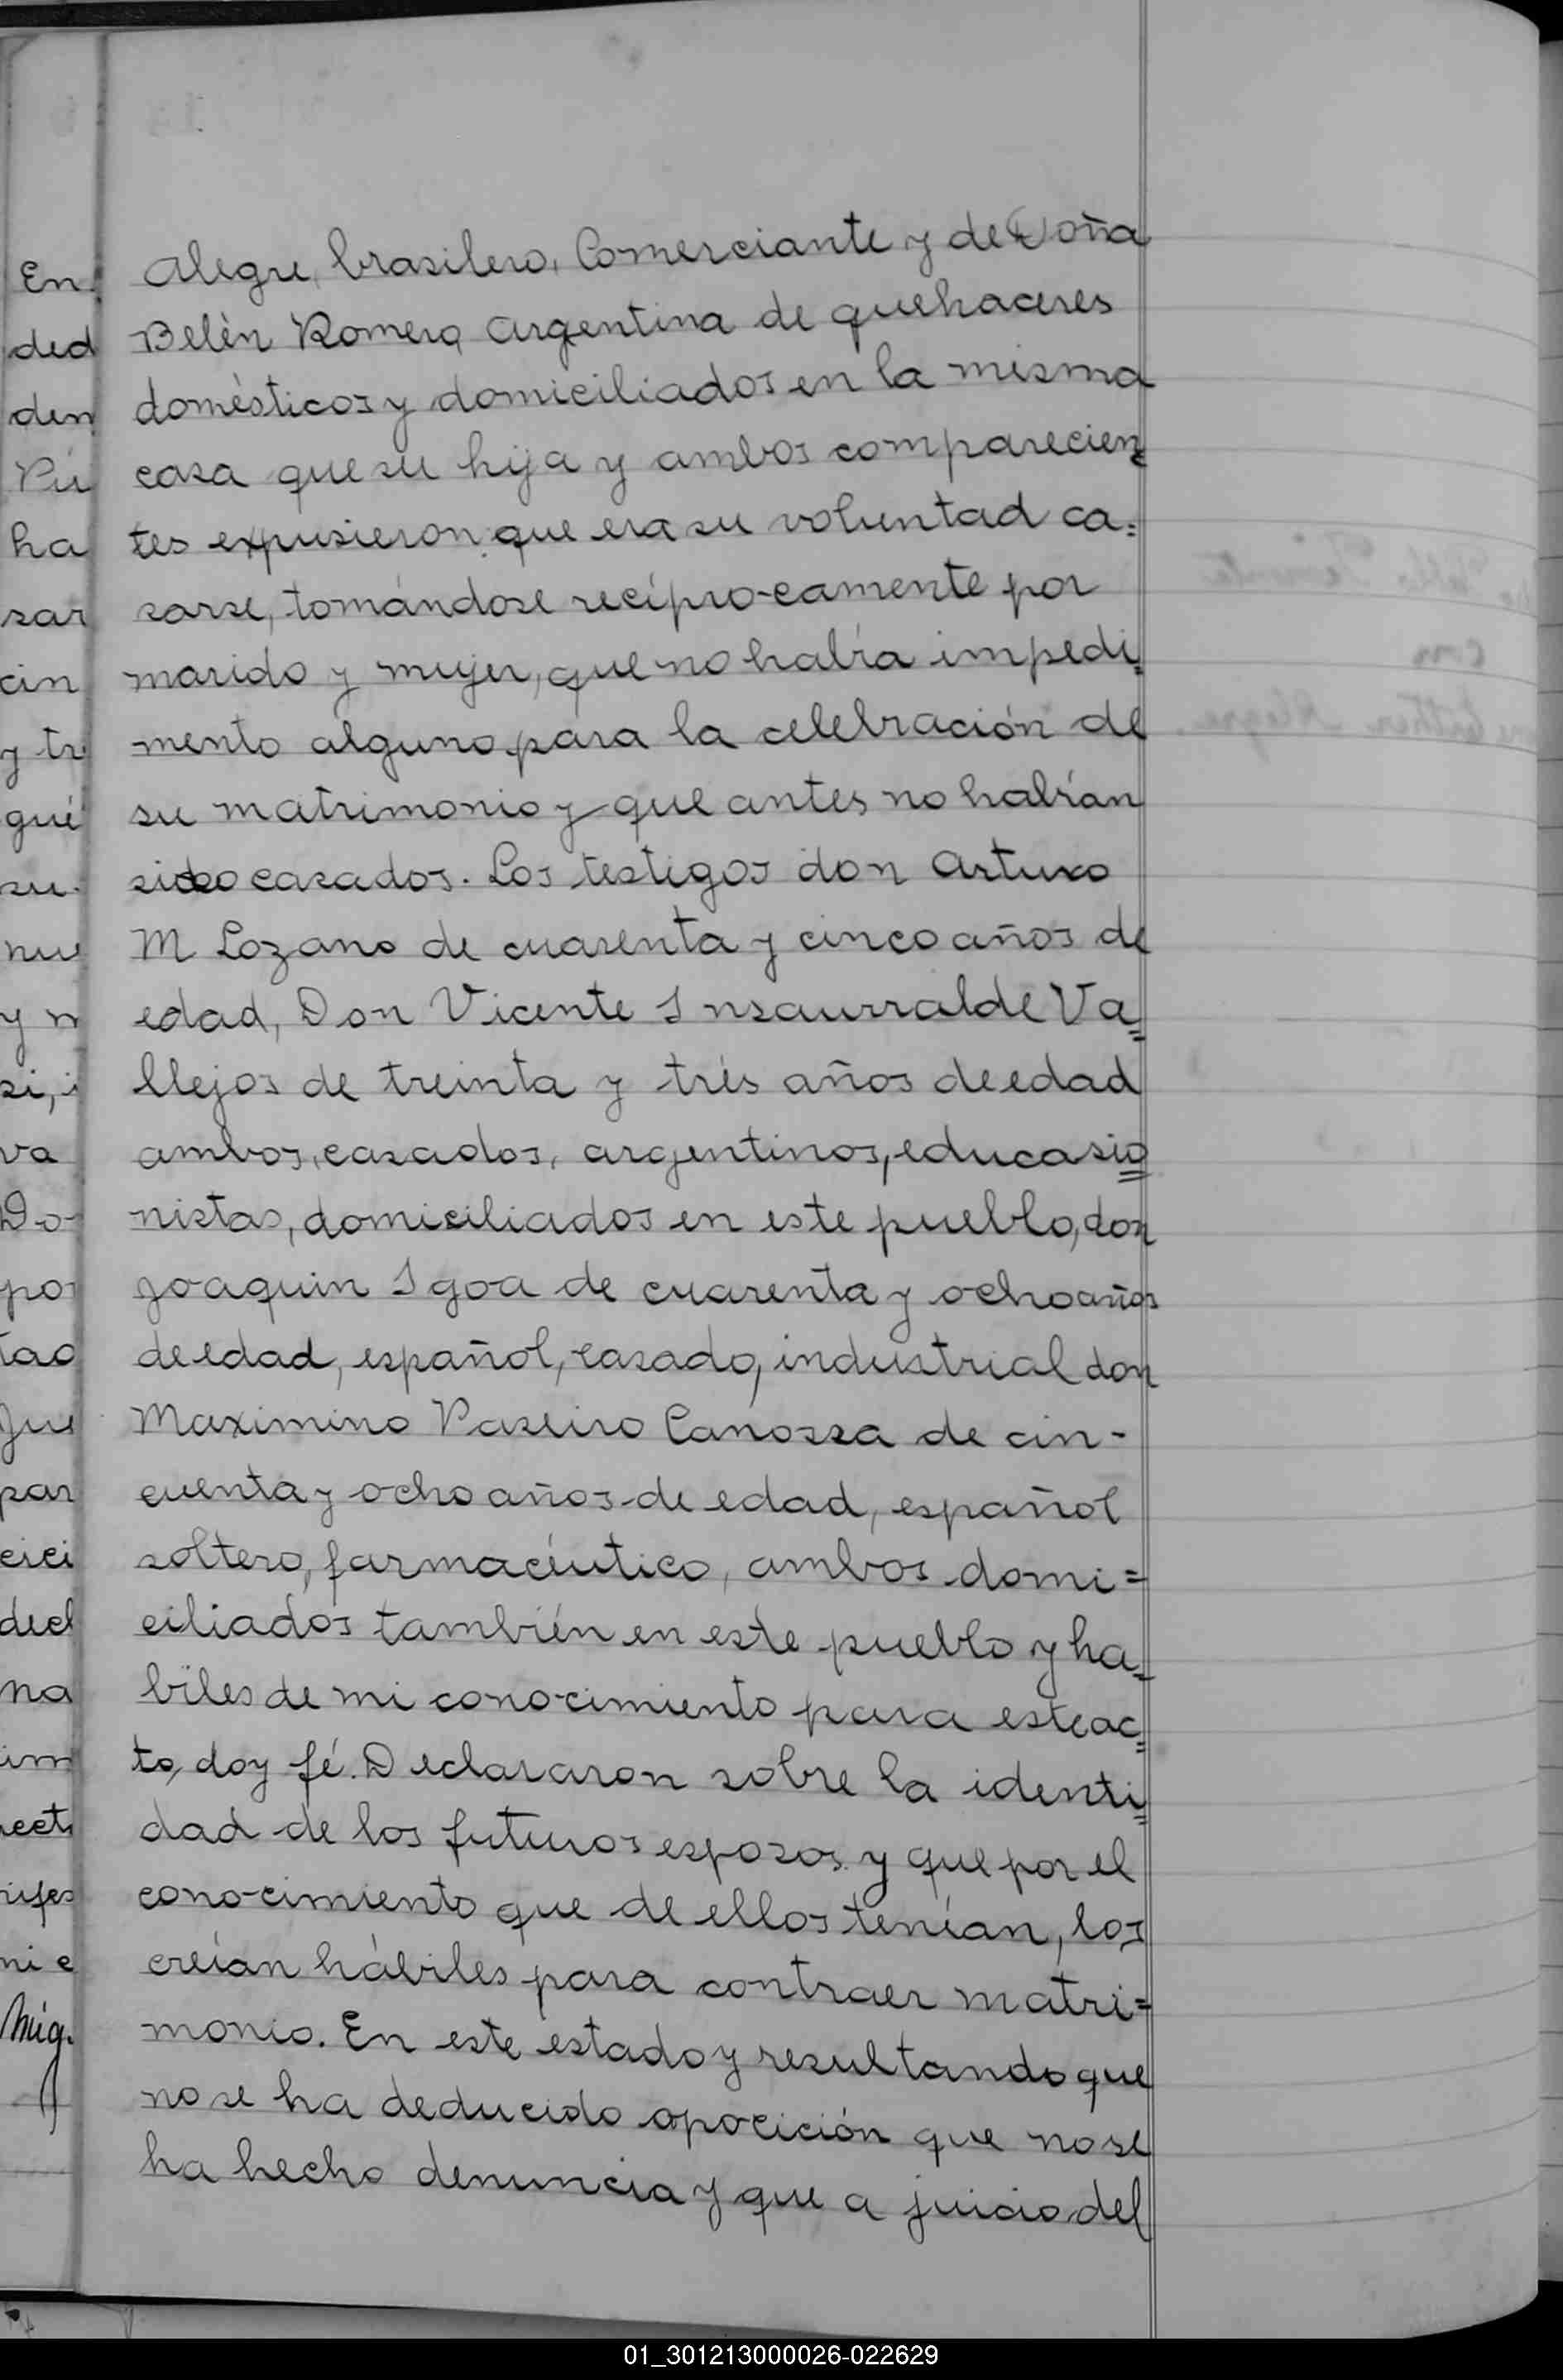 Alegre, brasilero, Comerciante y de Doña
Belén Romero, Argentina de quehaceres
domésticos y domiciliados en la misma
casa que su hija y ambos comparecien=
tes expusieron: que era su voluntad ca=
sarse, tomándose recíprocamente por
marido y mujer, que no había impedi=
mento alguno para la celebración de
su matrimonio y que antes no habían
sido casados. Los testigos don Arturo
M Lozano de cuarenta y cinco años de
edad, Don Vicente Insaurralde Va=
llejos de treinta y trés años de edad
ambos, casados, argentinos, educasio=
nistas, domiciliados en este pueblo, don
Joaquin Igoa de cuarenta y ocho años
de edad, español, casado, industrial don
Maximino Paseiro Canossa de cin-
cuenta y ocho años de edad, español
soltero, farmacéutico, ambos domi=
ciliados también en este pueblo y ha=
biles de mi conocimiento para este ac=
to, doy fé. Declararon sobre la identi=
dad de los futuros esposos y que por el
conocimiento que de ellos tenían, los
creían hábiles para contraer matri=
monio. En este estado y resultando que
no se ha deducido oposición que no se
ha hecho denuncia y que a juicio del
En
ded
den
Pú
ha
sar
cin
y tr
gué
su
nue
y m
si, i
va
Do
po
tad
Jue
par
cici
decl
na
im
rect
rifes
ni e
Mig.
01_301213000026-022629